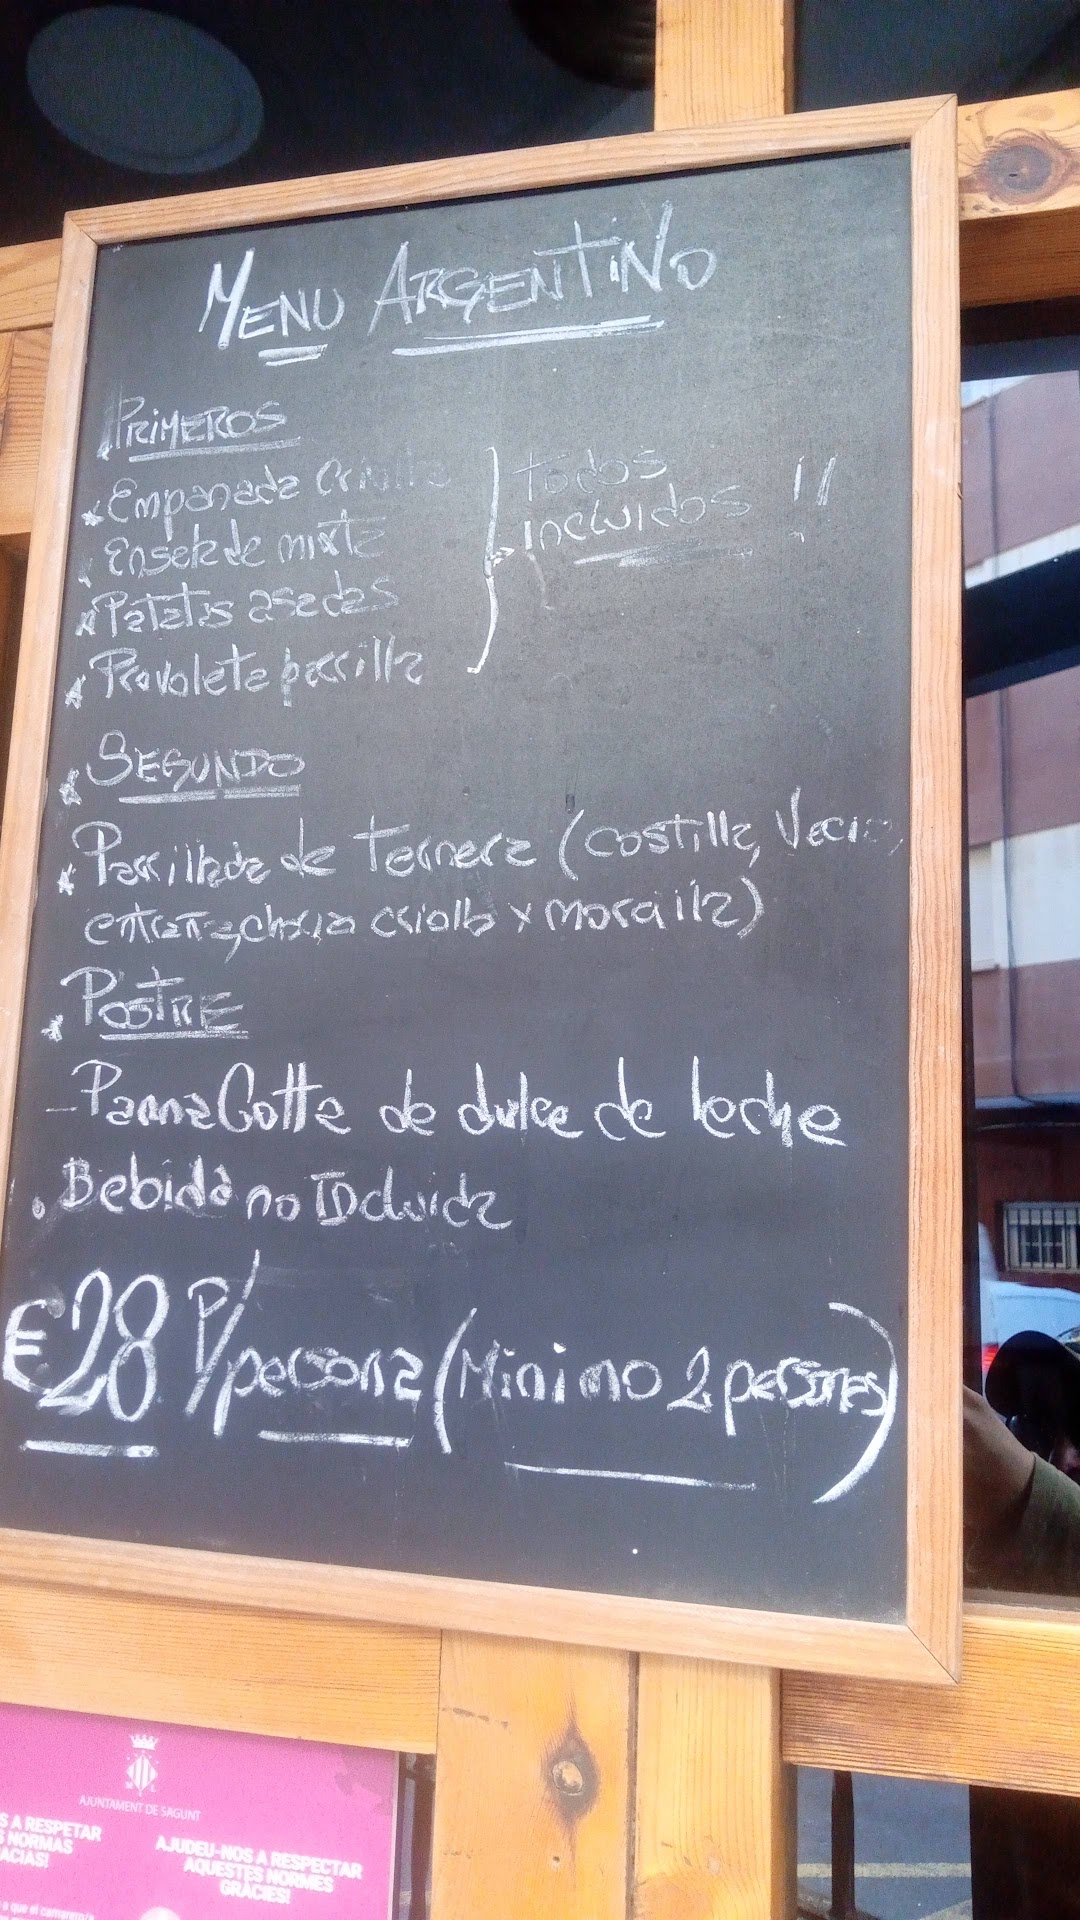 MENU ARGENTINO
PRIMEROS
Empanada Criolla
Ensalada mixta
Patatas asadas
Provoleta parrilla
todos
incluidos !!
SEGUNDO
Parrillada de ternera (costilla, Vacio,
entraña, chorizo criollo y morcilla)
POSTRE
- PannaCotta de dulce de leche
. Bebida no Incluida
€28 P/persona (Minimo 2 personas)
AJUNTAMENT DE SAGUNT
S A RESPETAR
S NORMAS
ACIAS!
AJUDEU-NOS A RESPECTAR
AQUESTES NORMES
GRÀCIES!
a que el camarero/a